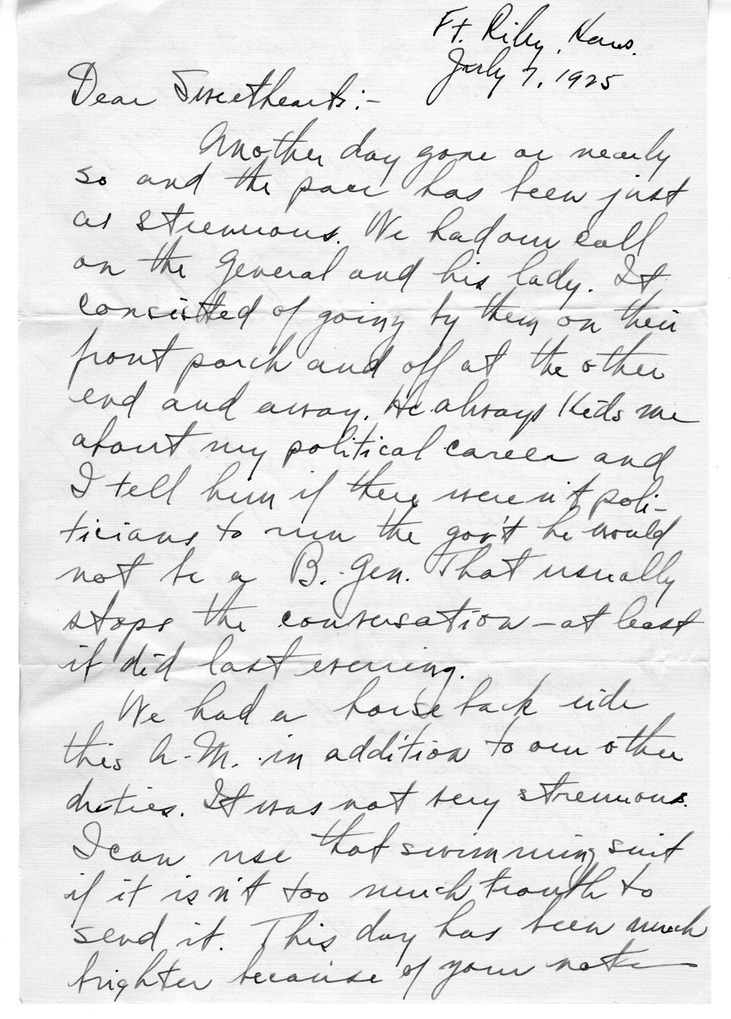 Ft. Riley, Kans.
July 7, 1925
Dear Sweetheart:-
Another day gone or nearly
so and the pace has been just
as strenuous. We had our call
on the General and his lady. It
consisted of going by them on their
front porch and off at the other
end and away. He always kids me
about my political career and
I tell him if there weren't poli-
ticians to run the gov't he would
not be a B. Gen. That usually
stops the conversation - at least
it did last evening.
We had a horseback ride
this A.M. in addition to our other
duties. It was not very strenuous.
I can use that swimming suit
if it isn't too much trouble to
send it. This day has been much
brighter because of your note